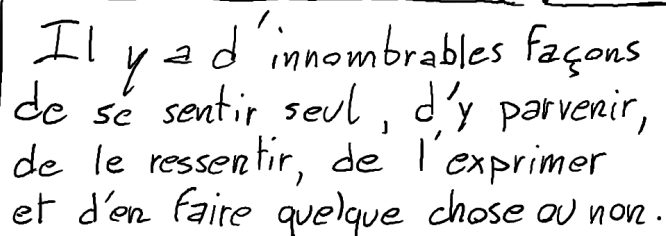 Il y a d'innombrables façons
de se sentir seul, d'y parvenir,
de le ressentir, de l'exprimer
et d'en faire quelque chose ou non.